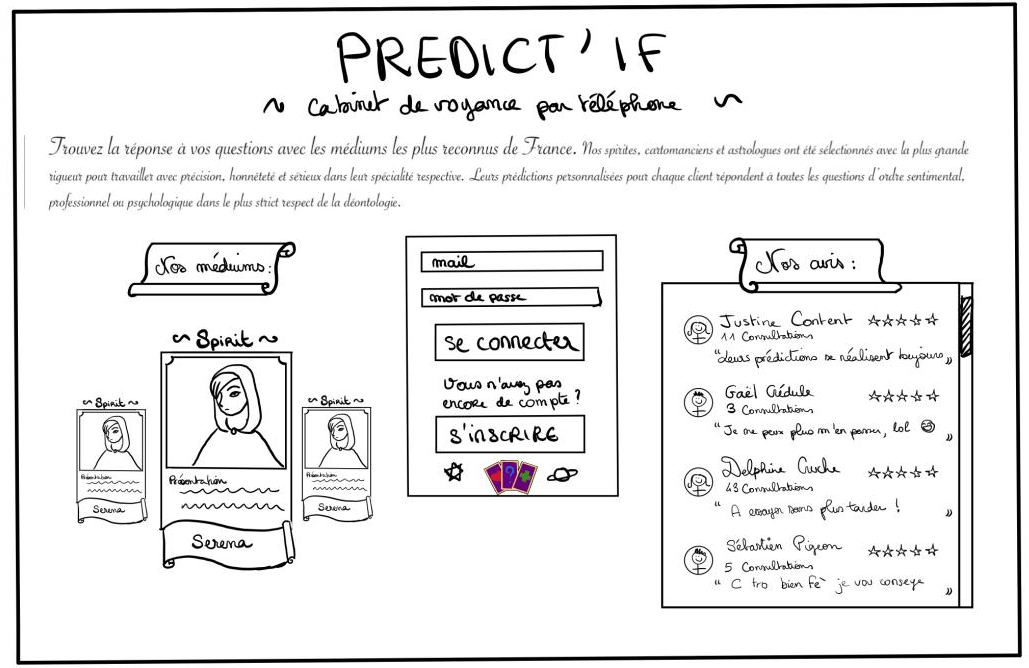 PREDICT'IF
~ Cabinet de voyance par téléphone ~
Trouvez la réponse à vos questions avec les médiums les plus reconnus de France. Nos spirites, cartomanciens et astrologues ont été sélectionnés avec la plus grande
rigueur pour travailler avec précision, honnêteté et sérieux dans leur spécialité respective. Leurs prédictions personnalisées pour chaque client répondent à toutes les questions d'ordre sentimental,
professionnel ou psychologique dans le plus strict respect de la déontologie.
Nos médiums :
~ Spirit ~
Présentation
Serena
~ Spirit ~
Présentation
Serena
~ Spirit ~
Présentation
Serena
mail
mot de passe
se connecter
Vous n'avez pas
encore de compte ?
S'INSCRIRE
?
Nos avis :
Justine Content ☆☆☆☆☆
11 Consultations
"Leurs prédictions se réalisent toujours"
Gaël Crédule ☆☆☆☆☆
3 Consultations
"Je ne peux plus m'en passer, lol 😄"
Delphine Cruche ☆☆☆☆☆
43 Consultations
"A essayer sans plus tarder !"
Sébastien Pigeon ☆☆☆☆☆
5 Consultations
"C tro bien fè je vou conseye"